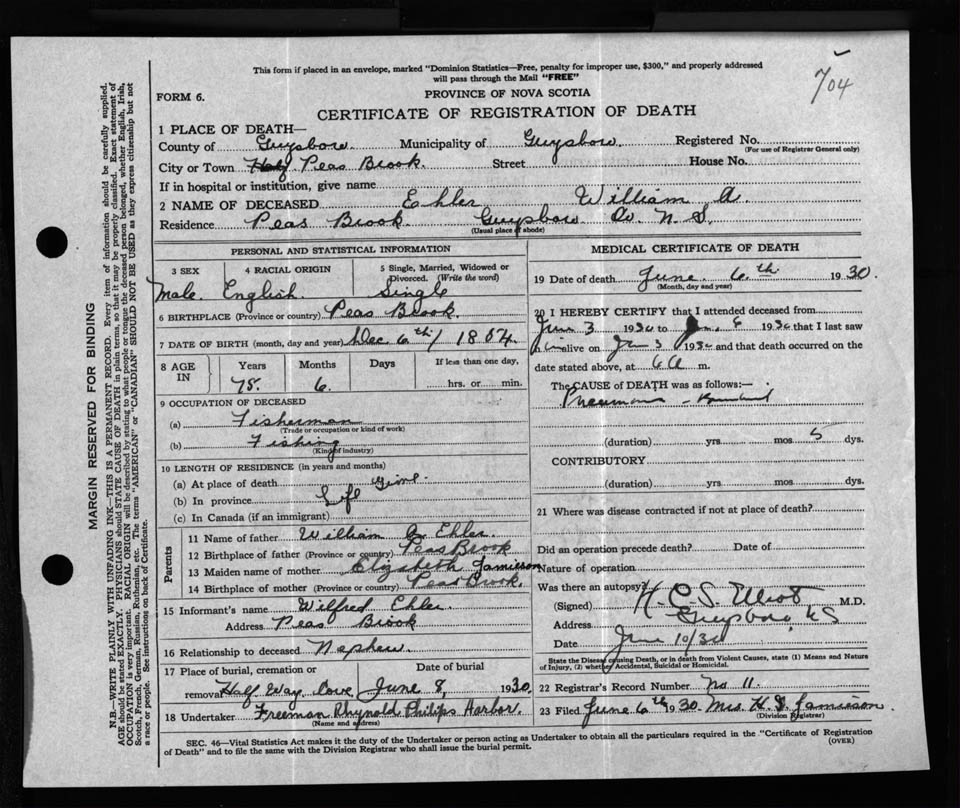 704
This form if placed in an envelope, marked "Dominion Statistics—Free, penalty for improper use, $300," and properly addressed
will pass through the Mail "FREE"
FORM 6.
PROVINCE OF NOVA SCOTIA
CERTIFICATE OF REGISTRATION OF DEATH
1 PLACE OF DEATH—
County of Guysboro. Municipality of Guysboro. Registered No.
(For use of Registrar General only)
City or Town Peas Brook. Street House No.
If in hospital or institution, give name
2 NAME OF DECEASED Ehler William A.
Residence Peas Brook Guysboro Co. N. S.
(Usual place of abode)
PERSONAL AND STATISTICAL INFORMATION
3 SEX 4 RACIAL ORIGIN 5 Single, Married, Widowed or Divorced. (Write the word)
Male. English. Single
6 BIRTHPLACE (Province or country) Peas Brook.
7 DATE OF BIRTH (month, day and year) Dec 6th / 1854.
8 AGE IN Years Months Days If less than one day,
75. 6. hrs. or min.
9 OCCUPATION OF DECEASED
(a) Fisherman
(Trade or occupation or kind of work)
(b) Fishing
(Kind of industry)
10 LENGTH OF RESIDENCE (in years and months)
(a) At place of death
(b) In province Life Time.
(c) In Canada (if an immigrant)
Parents
11 Name of father William Ehler.
12 Birthplace of father (Province or country) Peas Brook
13 Maiden name of mother Elizabeth Jamieson
14 Birthplace of mother (Province or country) Peas Brook.
15 Informant's name Wilfred Ehler.
Address Peas Brook
16 Relationship to deceased Nephew
17 Place of burial, cremation or removal Date of burial
Half Way Cove June 8, 1930.
18 Undertaker Freeman Rhynold Philips Harbor.
(Name and address)
MEDICAL CERTIFICATE OF DEATH
19 Date of death June. 6th 1930.
(Month, day and year)
20 I HEREBY CERTIFY that I attended deceased from
June 3 1930 to 6 1930 that I last saw
him alive on June 3 1930 and that death occurred on the
date stated above, at 6 a m.
The CAUSE of DEATH was as follows:—
Pneumonia
(duration) yrs. mos. 5 dys.
CONTRIBUTORY
(duration) yrs. mos. dys.
21 Where was disease contracted if not at place of death?
Did an operation precede death? Date of
Nature of operation
Was there an autopsy?
(Signed) M.D.
Address Guysboro, NS
Date June 10/30
State the Disease causing Death, or in death from Violent Causes, state (1) Means and Nature
of Injury, (2) whether Accidental, Suicidal or Homicidal.
22 Registrar's Record Number No 11.
23 Filed June 6th 1930. Mrs H. Jamieson.
(Division Registrar)
SEC. 46—Vital Statistics Act makes it the duty of the Undertaker or person acting as Undertaker to obtain all the particulars required in the "Certificate of Registration
of Death" and to file the same with the Division Registrar who shall issue the burial permit.
(OVER)
MARGIN RESERVED FOR BINDING
N.B.—WRITE PLAINLY WITH UNFADING INK—THIS IS A PERMANENT RECORD. Every item of information should be carefully supplied.
AGE should be stated EXACTLY. PHYSICIANS should STATE CAUSE OF DEATH in plain terms, so that it may be properly classified. Exact statement of
OCCUPATION is very important. RACIAL ORIGIN will be described by stating to what people or tongue the deceased person belonged, whether English, Irish,
Scotch, French, German, Russian, Ruthenian, etc. The terms "AMERICAN" or "CANADIAN" SHOULD NOT BE USED as they express citizenship but not
a race or people. See instructions on back of Certificate.